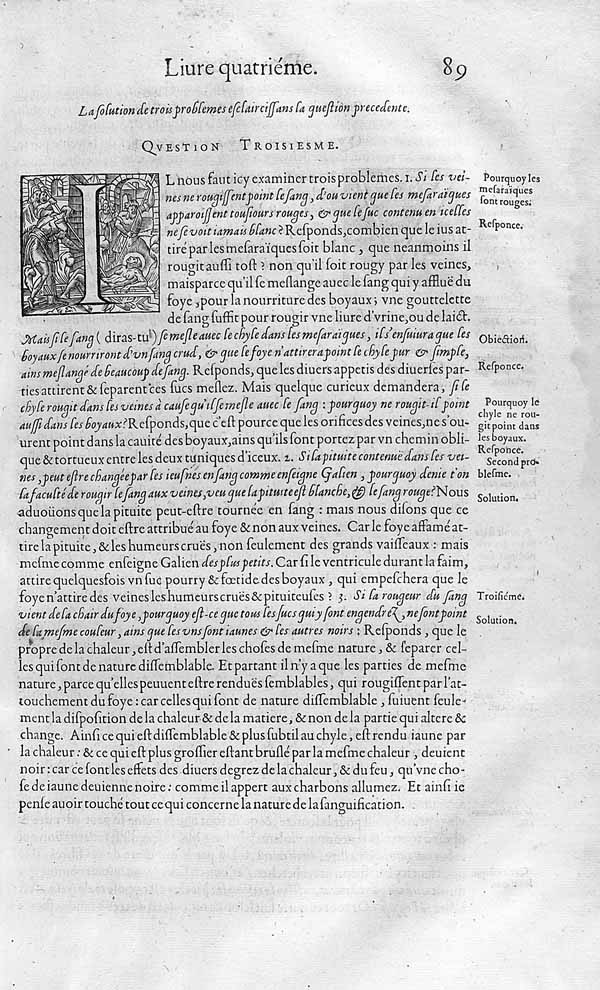 Liure quatriéme. 89
La ſolution de trois problemes eſclairciſſans la queſtion precedente.
QVESTION TROISIESME.
IL nous faut icy examiner trois problemes. 1. Si les vei-
nes ne rougiſſent point le ſang, d'ou vient que les meſaraïques
apparoiſſent touſiours rouges, & que le ſuc contenu en icelles
ne ſe voit iamais blanc? Reſponds, combien que le ius at-
tiré par les meſaraïques ſoit blanc, que neanmoins il
rougit auſſi toſt? non qu'il ſoit rougy par les veines,
mais parce qu'il ſe meſlange auec le ſang qui y afflue du
foye, pour la nourriture des boyaux; vne gouttelette
de ſang ſuffit pour rougir vne liure d'vrine, ou de laict.
Mais ſi le ſang (diras-tu) ſe meſle auec le chyle dans les meſaraïques, il s'enſuiura que les
boyaux ſe nourriront d'vn ſang crud, & que le foye n'attirera point le chyle pur & ſimple,
ains meſlangé de beaucoup de ſang. Reſponds, que les diuers appetis des diuerſes par-
ties attirent & ſeparent ces ſucs meſlez. Mais quelque curieux demandera, ſi le
chyle rougit dans les veines à cauſe qu'il ſe meſle auec le ſang: pourquoy ne rougit-il point
auſſi dans les boyaux? Reſponds, que c'eſt pource que les orifices des veines, ne s'ou-
urent point dans la cauité des boyaux, ains qu'ils ſont portez par vn chemin obli-
que & tortueux entre les deux tuniques d'iceux. 2. Si la pituite contenuë dans les vei-
nes, peut eſtre changée par les ieuſnes en ſang comme enſeigne Galien, pourquoy denie t'on
la faculté de rougir le ſang aux veines, veu que la pituite eſt blanche, & le ſang rouge? Nous
aduoüons que la pituite peut-eſtre tournée en ſang: mais nous diſons que ce
changement doit eſtre attribué au foye & non aux veines. Car le foye affamé at-
tire la pituite, & les humeurs cruës, non ſeulement des grands vaiſſeaux: mais
meſme comme enſeigne Galien des plus petits. Car ſi le ventricule durant la faim,
attire quelquesfois vn ſuc pourry & fœtide des boyaux, qui empeſchera que le
foye n'attire des veines les humeurs cruës & pituiteuſes? 3. Si la rougeur du ſang
vient de la chair du foye, pourquoy eſt-ce que tous les ſucs qui y ſont engendrez, ne ſont point
de la meſme couleur, ains que les vns ſont iaunes & les autres noirs: Reſponds, que le
propre de la chaleur, eſt d'aſſembler les choſes de meſme nature, & ſeparer cel-
les qui ſont de nature diſſemblable. Et partant il n'y a que les parties de meſme
nature, parce qu'elles peuuent eſtre renduës ſemblables, qui rougiſſent par l'at-
touchement du foye: car celles qui ſont de nature diſſemblable, ſuiuent ſeule-
ment la diſpoſition de la chaleur & de la matiere, & non de la partie qui altere &
change. Ainſi ce qui eſt diſſemblable & plus ſubtil au chyle, eſt rendu iaune par
la chaleur: & ce qui eſt plus groſſier eſtant bruſlé par la meſme chaleur, deuient
noir: car ce ſont les effets des diuers degrez de la chaleur, & du feu, qu'vne cho-
ſe de iaune deuienne noire: comme il appert aux charbons allumez. Et ainſi ie
penſe auoir touché tout ce qui concerne la nature de la ſanguification.
Pourquoy les
meſaraïques
ſont rouges.
Reſponce.
Obiection.
Reſponce.
Pourquoy le
chyle ne rou-
git point dans
les boyaux.
Reſponce.
Second pro-
bleſme.
Solution.
Troiſiéme.
Solution.